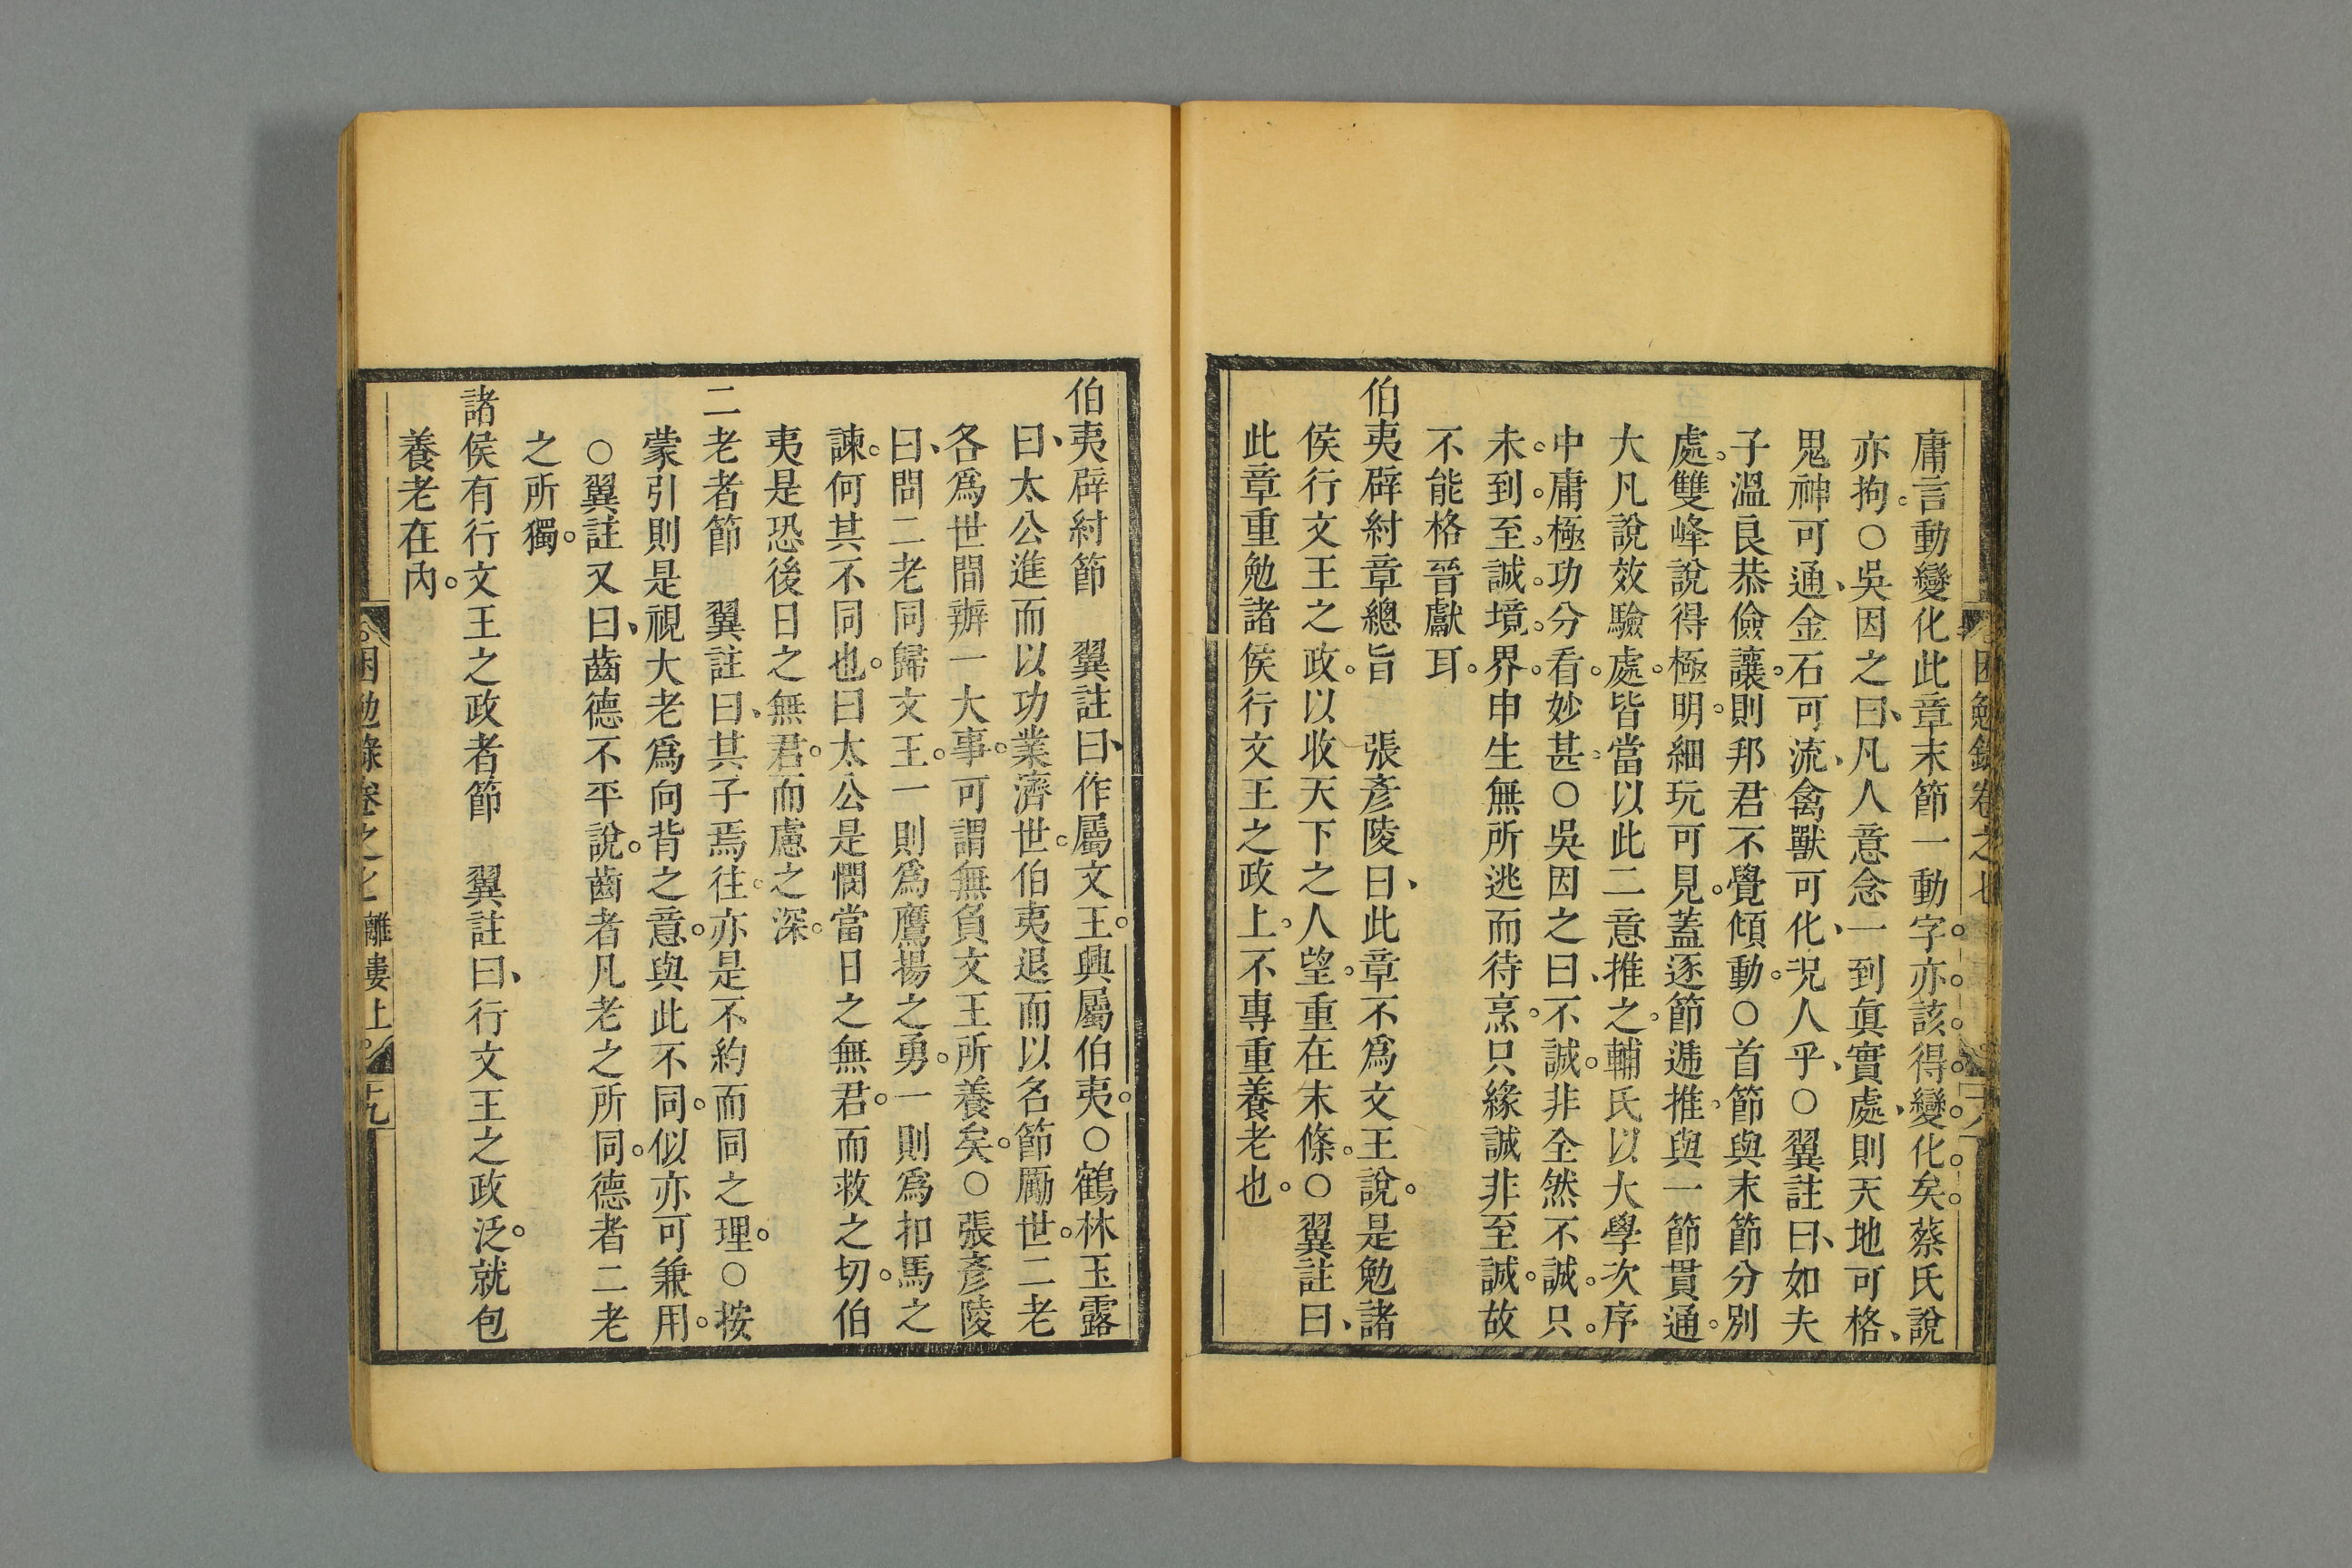 庸言動變化此章末節一動字亦該得變化矣蔡氏說
亦拘○吳因之曰凡人意念一到眞實處則天地可格
鬼神可通金石可流禽獸可化况人乎○翼註曰如夫
子溫良恭儉讓則邦君不覺傾動○首節與末節分別
處雙峰說得極明細玩可見蓋逐節遞推與一節貫通
大凡說效驗處皆當以此二意推之輔氏以大學次序
中庸極功分看妙甚○吳因之曰不誠非全然不誠只
未到至誠境界申生無所逃而待烹只緣誠非至誠故
不能格晉獻耳
伯夷辟紂章總旨　張彥陵曰此章不爲文王說是勉諸
侯行文王之政以收天下之人望重在末條○翼註曰
此章重勉諸侯行文王之政上不專重養老也
伯夷辟紂節　翼註曰作屬文王興屬伯夷○鶴林玉露
曰太公進而以功業濟世伯夷退而以名節勵世二老
各爲世間辦一大事可謂無負文王所養矣○張彥陵
曰問二老同歸文王一則爲鷹揚之勇一則爲扣馬之
諫何其不同也曰太公是憫當日之無君而救之切伯
夷是恐後日之無君而慮之深
二老者節　翼註曰其子焉往亦是不約而同之理○按
蒙引則是視大老爲向背之意與此不同似亦可兼用
○翼註又曰齒德不平說齒者凡老之所同德者二老
之所獨
諸侯有行文王之政者節　翼註曰行文王之政泛就包
養老在內
困勉錄卷之七　離婁上　十九